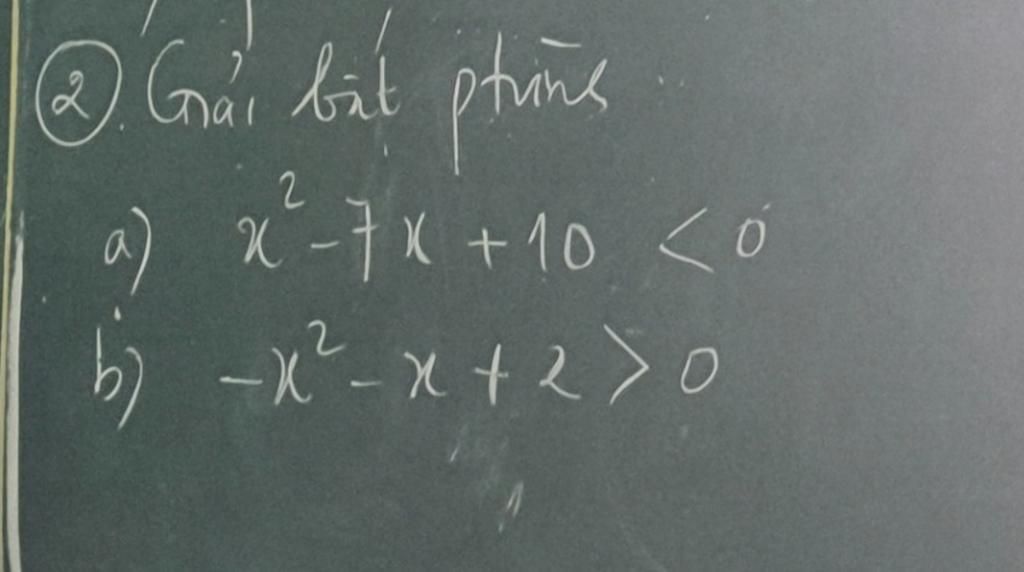 ② Giải bất phương
a) x² - 7x + 10 < 0
b) -x² - x + 2 > 0